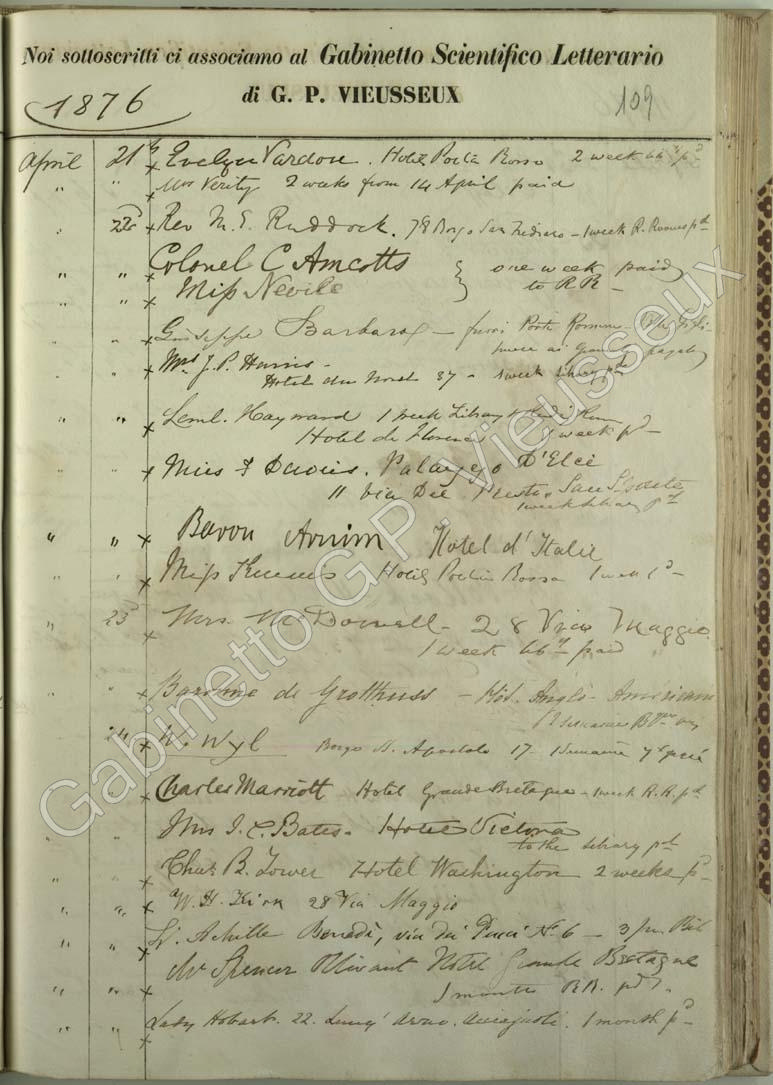 Noi sottoscritti ci associamo al Gabinetto Scientifico Letterario
di G. P. VIEUSSEUX
1876
109
April 21 x Evelyn Vardon. Hotel Porta Rossa 2 week pd
" " x Mrs Verity 2 weeks from 14 April paid
" 22 x Rev M. E. Ruddock. 78 Borgo San Frediano - 1 week R. Rooms pd
" " x Colonel C Amcotts } one week paid
" " x Miss Nevile to RR -
" " x Giuseppe Barbara - fuori Porta Romana
x Mrs J. P. Harris -
Hotel du Nord 37 - 1 week library pd
" " x Leml. Hayward 1 week Library &
Hotel de Florence 1 week pd
" " x Miss F Davies. Palazzo D'Elci
11 Via Dei
1 week library pd
" " x Baron Arnim Hotel d'Italie
" " x Miss Hotel Porta Rossa 1 week pd
" 23 x Mrs. McDowell - 28 Via Maggio
1 week paid
" " x Baronne de Grotthuss - Hôt. Anglo-Américain
24 x W. Wyl Borgo S. Apostoli 17 - 1 semaine
x Charles Marriott Hotel Grande Bretagne - 1 week R.R. pd
" " Mrs J. C. Bates - Hotel Victoria
to the library pd
" " x Chas B. Tower Hotel Washington 2 weeks pd
" " x W. H. Kirk 28 Via Maggio
" " x Achille via dei Pucci No 6 - 3
x Mr Spencer Hotel Grande Bretagne
1 month R.R. pd
" " x Lady Hobart. 22. Lung' Arno. Acciajuoli. 1 month pd
Gabinetto G.P. Vieusseux